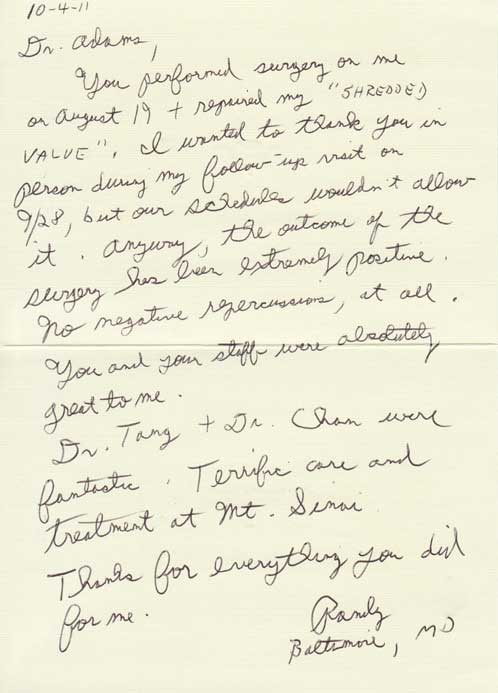 10-4-11
Dr. Adams,
You performed surgery on me
on August 19 + repaired my "SHREDDED
VALUE". I wanted to thank you in
person during my follow-up visit on
9/28, but our schedules wouldn't allow
it. Anyway, the outcome of the
surgery has been extremely positive.
No negative repercussions, at all.
You and your staff were absolutely
great to me.
Dr. Tang + Dr. Chan were
fantastic. Terrific care and
treatment at Mt. Sinai
Thanks for everything you did
for me.
Randy
Baltimore, MD